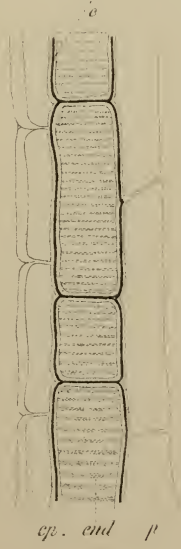 c
ep. end p